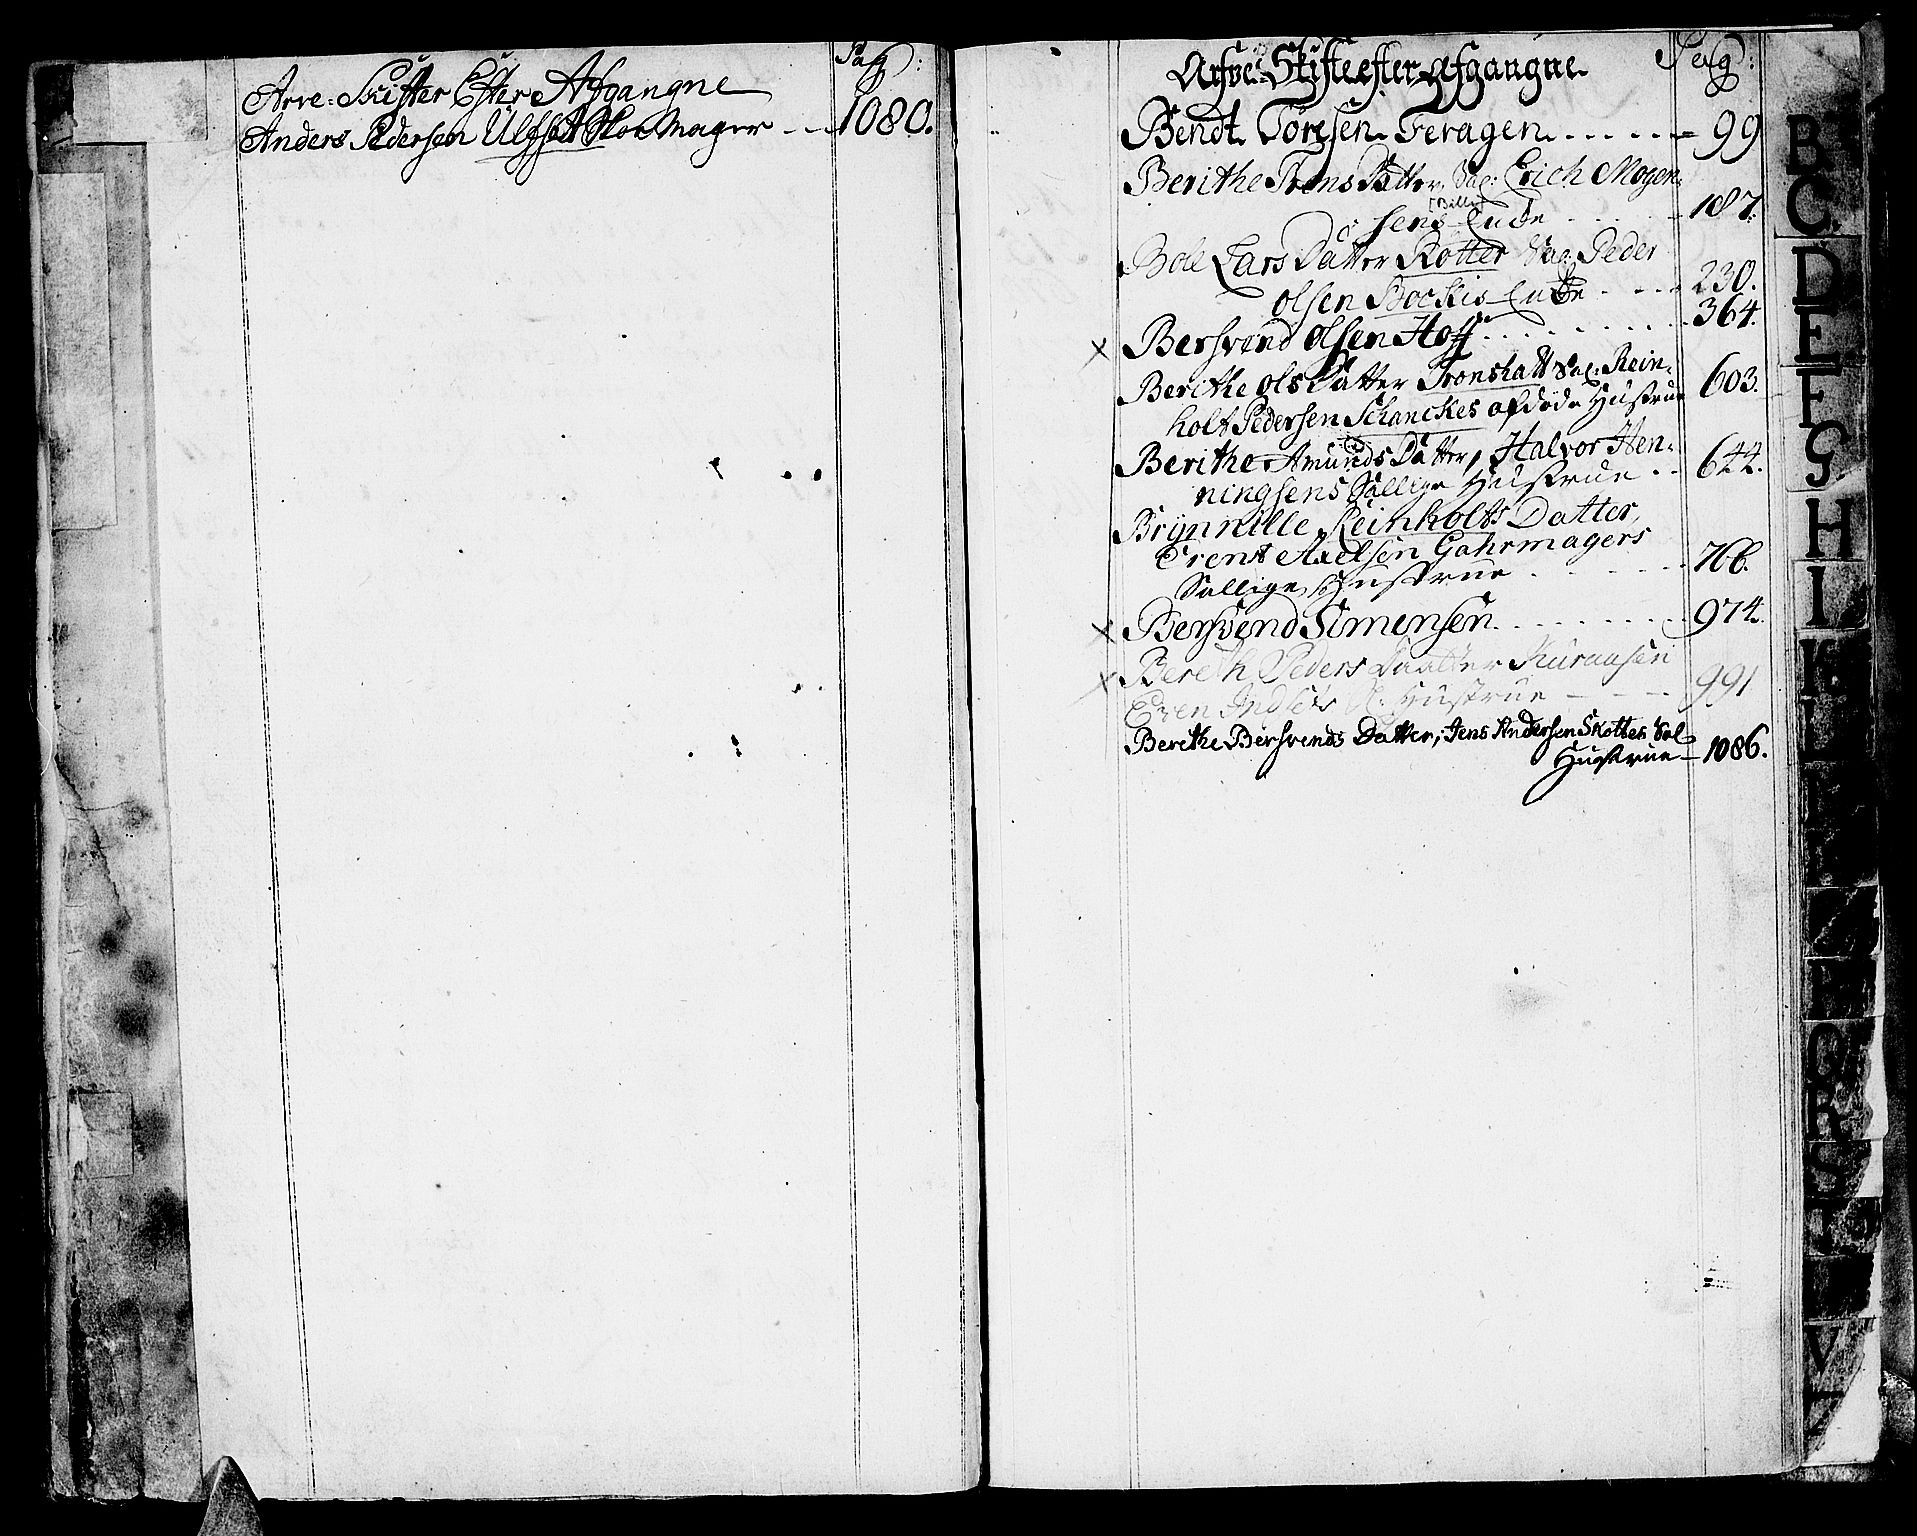 Arve: Skifter Efter Afgangne Pag:
Anders Pedersen Ulfset Skoe Mager -- 1080.
Arfve-Skifte efter Afgangne Pag:
Bendt Töresen Feragen ...... 99
Berithe Trons Datter, Sal: Erich Mogen-
[Bille]
sens Encke ...... 187.
Bole Lars Datter Rotter Sal: Peder
olsen Bockis Encke .... 230.
x Bersvend olsen Hoff ........ 364.
Berithe ols Datter Tronshatt Sal: Rein- 603.
holt Pedersen Schanckes afdöde Hustrue
Berithe Amunds Datter, Halvor Hen- 644.
ningsens Sallige Hustrue ..
Brynnille Reinholts Datter,
Trent Axelsen Gahrmagers
Sallige Hustrue ...... 766.
x Bersvend Simensen ........ 974.
x Bereth Peders Daatter
Even S: Hustrue ---- 991
Berithe Bersvends Datter, Jens Andersen Skottes Sal
Hustrue - 1086.
B
C
D
E
F
G
H
I
K
L
P
Q
R
S
T
V